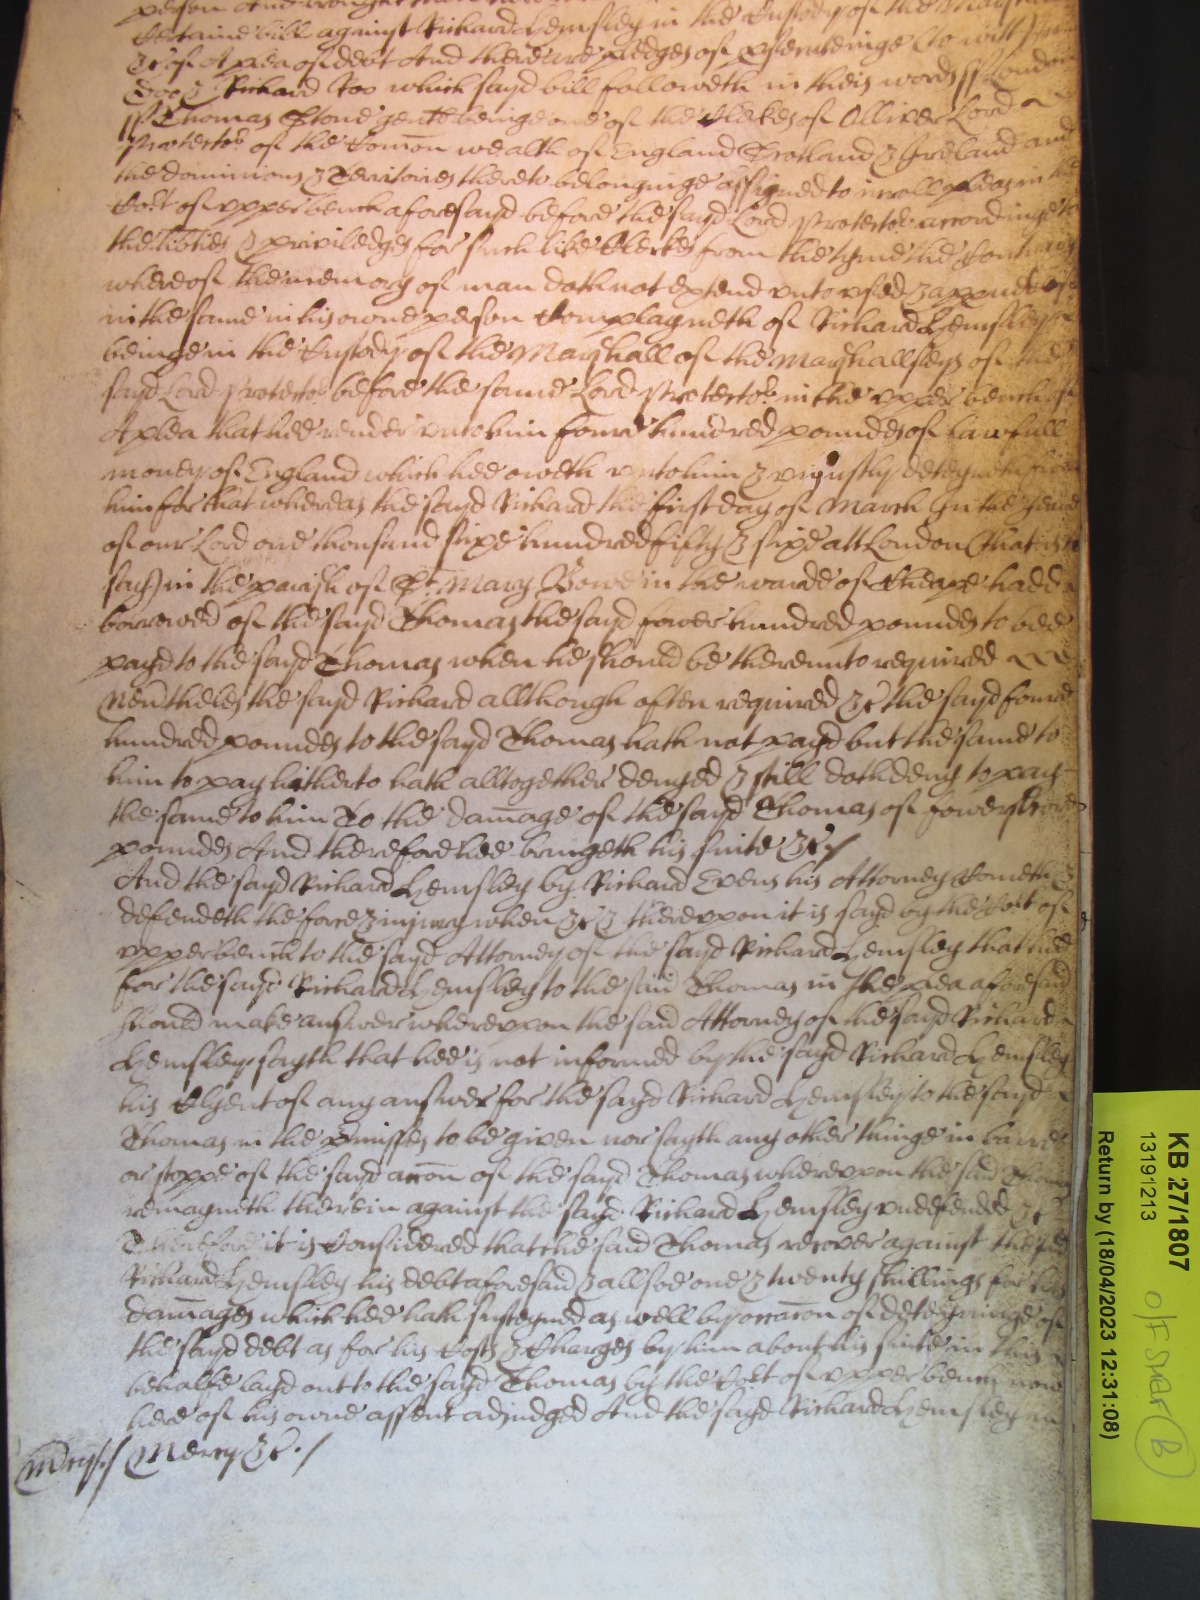 person And brought
Certaine bill against Richard Hemsley in the Custody of the Marshall
&c of A plea of debt And there are pledges of prosecuteinge (to witt) John
Doe & Richard Roo which sayd bill followeth in theis words ss London
ss Thomas Stone gent beinge one of the Clerkes of Olliver Lord
Protector of the Comon wealth of England Scotland & Ireland and
the dominions & Territories thereto belonginge assigned to inroll pleas in the
Cort of upper bench aforesayd before the sayd Lord Protector accordinge to
the lib'ties & priviledges for such like Clerkes from the tyme the Contrary
whereof the memory of man doth not extend unto used & app
in the same in his owne person Complayneth of Richard Hemsley
beinge in the Custody of the Marshall of the Marshallseys of the
sayd Lord Protector before the same Lord Protector in the upper bench of
A plea that hee render unto him foure hundred poundes of lawfull
money of England which hee oweth unto him & unjustly deteyneth from
him for that whereas the sayd Richard the first day of March In the yeare
of our Lord one thousand sixe hundred fifty & sixe att London (that is to
say) in the parish of St. Mary Bowe in the warde of Cheape hadd
borrowed of the sayd Thomas the sayd fower hundred poundes to bee
payd to the sayd Thomas when he should be thereunto required
Nev'theles the sayd Richard allthough often required &c the sayd foure
hundred poundes to the sayd Thomas hath not payd but the same to
him to pay hitherto hath alltogether denyed & still doth deny to pay
the same to him To the damage of the sayd Thomas of fower score
poundes And therefore hee bringeth his suite &c./
And the sayd Richard Hemsley by Richard Evens his Attorney Cometh &
defendeth the force & injury when &c & thereupon it is sayd by the Cort of
upper bench to the sayd Attorney of the sayd Richard Hemsley that hee
for the sayd Richard Hemsley to the said Thomas in the plea aforesaid
should make answer whereupon the said Attorney of the sayd Richard
Hemsley sayth that hee is not informed by the sayd Richard Hemsley
his Clyent of any answer for the sayd Richard Hemsley to the sayd
Thomas in the p'misses to be given nor sayth any other thinge in barre
or stoppe of the sayd accon of the sayd Thomas whereupon the said Thomas
remayneth therein against the sayd Richard Hemsley undefended &c
Therefore it is Considered that the said Thomas recover against the sd
Richard Hemsley his debt aforesaid & allsoe one & twenty shillings for his
damages which hee hath susteyned as well by occacon of deteyninge of
the sayd debt as for his Costs & Charges by him about his suite in this
behalfe layd out to the sayd Thomas by the Cort of upper bench now
here of his owne assent adjudged And the sayd Richard Hemsley in
Mercy &c./
KB 27/1807
13191213
Return by (18/04/2023 12:31:08)
O/F STAFF (B)